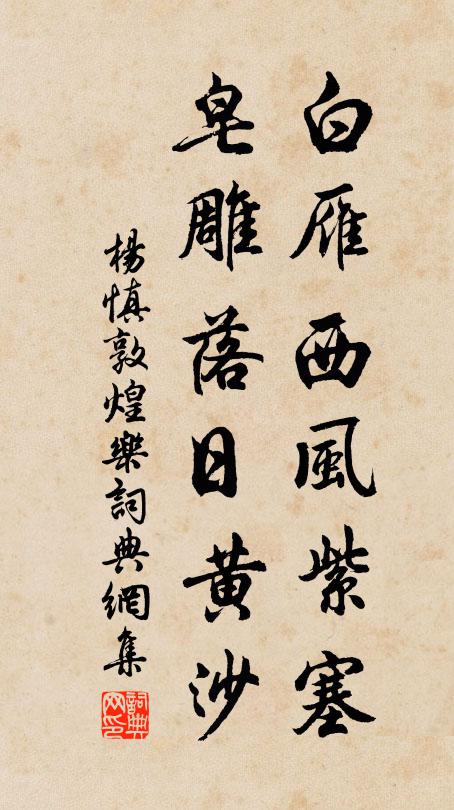 白雁西風紫塞
皂雕落日黃沙
楊慎敦煌樂詞典網集
詞典网印